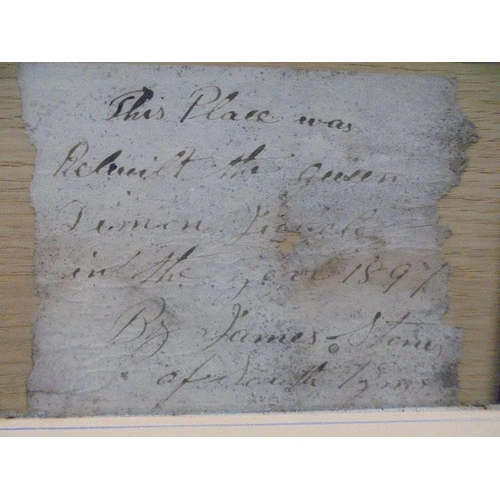 This Place was
Rebuilt the queen
Dimon Jquble
in the year 1897
By James Stone
of South